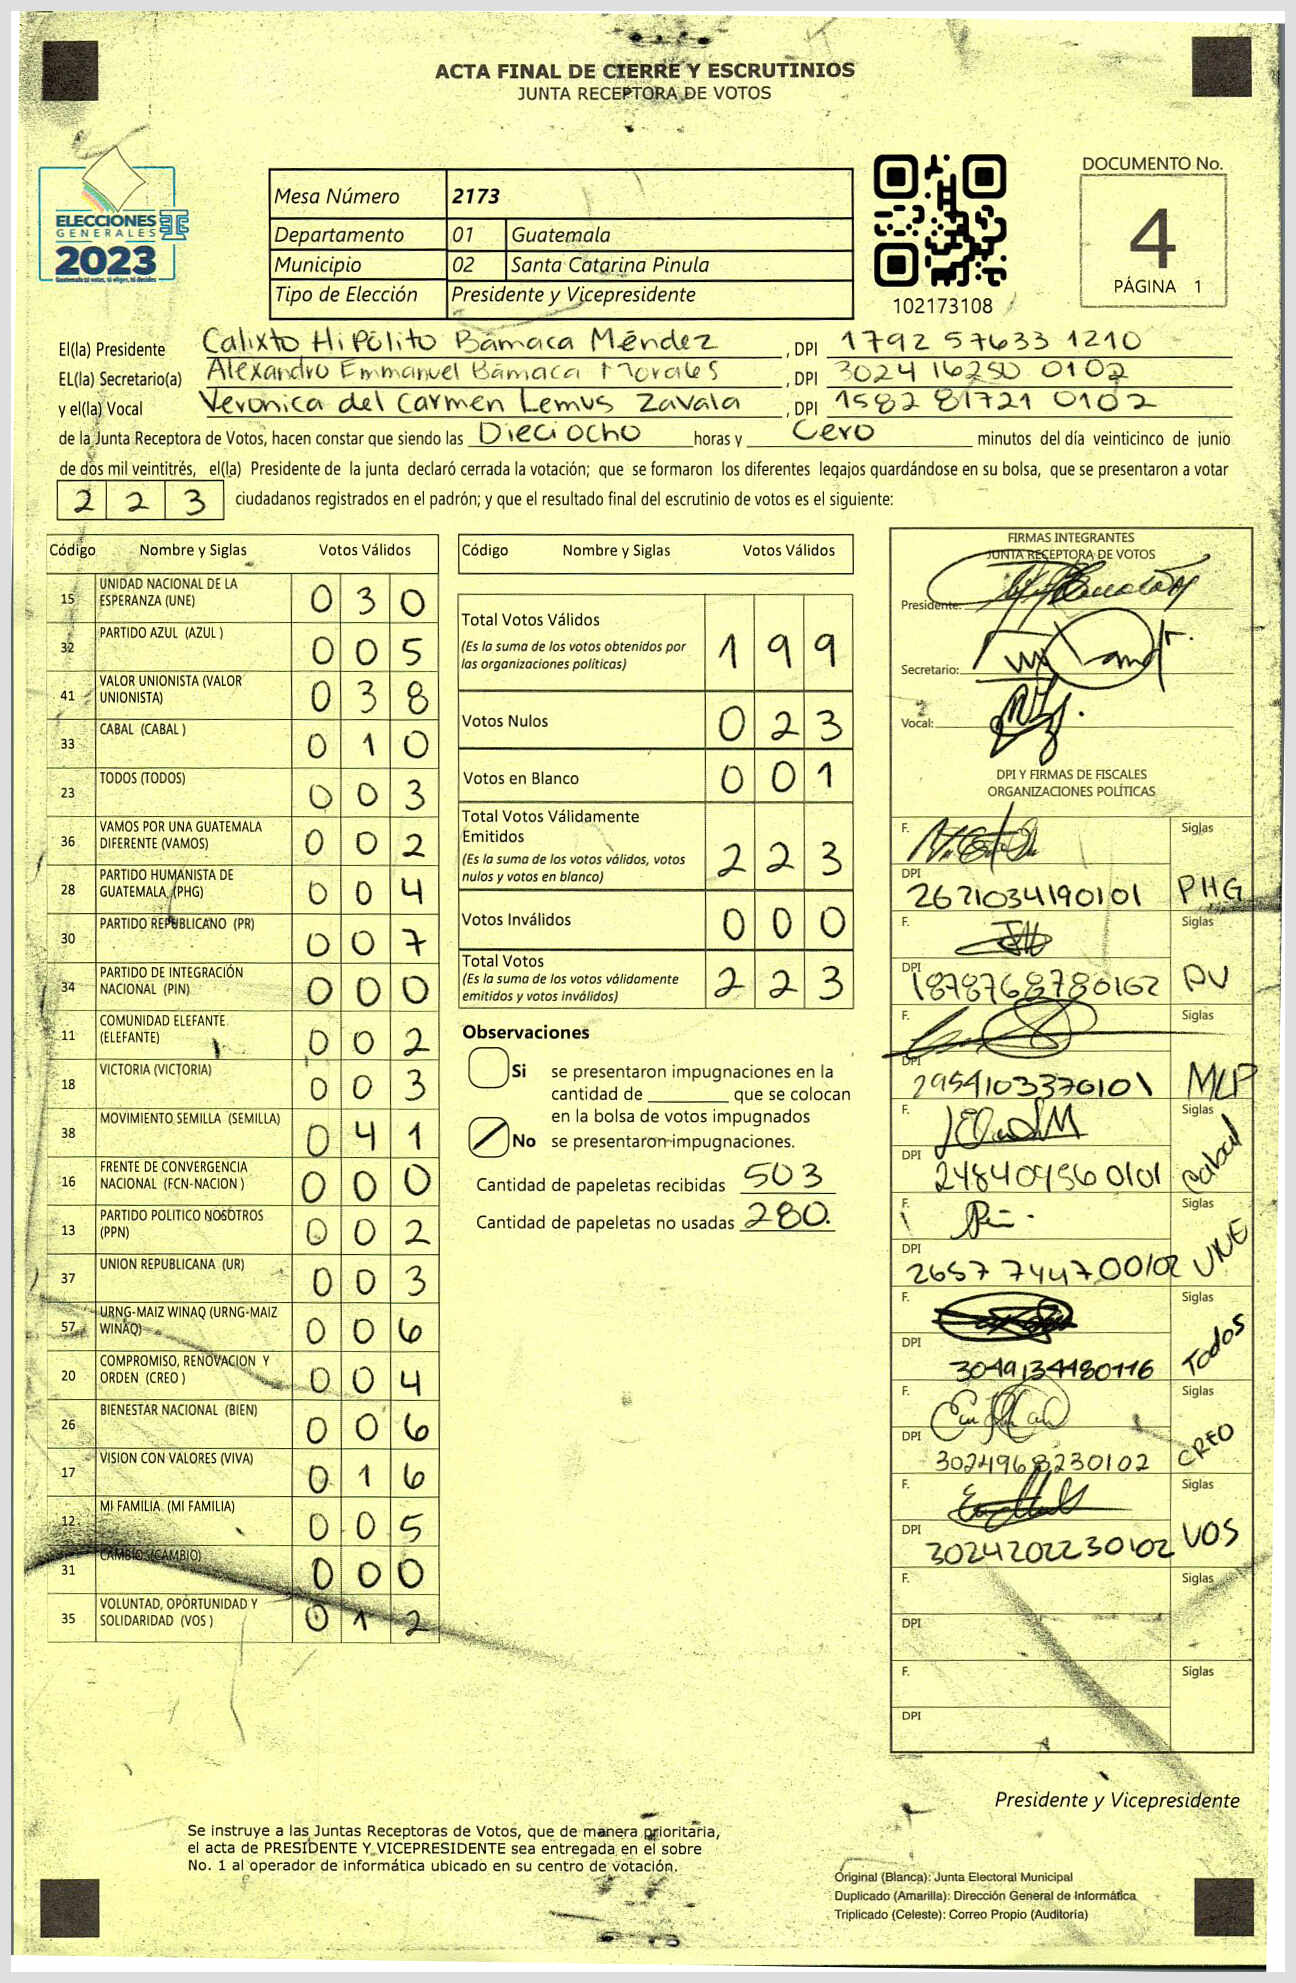 ACTA FINAL DE CIERRE Y ESCRUTINIOS
JUNTA RECEPTORA DE VOTOS
ELECCIONES
GENERALES
2023
Mesa Número 2173
Departamento 01 Guatemala
Municipio 02 Santa Catarina Pinula
Tipo de Elección Presidente y Vicepresidente
102173108
DOCUMENTO No.
4
PÁGINA 1
El(la) Presidente Calixto Hipólito Bámaca Méndez , DPI 1792 57633 1210
EL(la) Secretario(a) Alexandro Emmanuel Bámaca Morales , DPI 3024 16250 0102
y el(la) Vocal Veronica del Carmen Lemus Zavala , DPI 1582 81721 0102
de la Junta Receptora de Votos, hacen constar que siendo las Dieciocho horas y Cero minutos del día veinticinco de junio
de dos mil veintitrés, el(la) Presidente de la junta declaró cerrada la votación; que se formaron los diferentes legajos guardándose en su bolsa, que se presentaron a votar
2 2 3 ciudadanos registrados en el padrón; y que el resultado final del escrutinio de votos es el siguiente:
Código Nombre y Siglas Votos Válidos
15 UNIDAD NACIONAL DE LA ESPERANZA (UNE) 0 3 0
32 PARTIDO AZUL (AZUL ) 0 0 5
41 VALOR UNIONISTA (VALOR UNIONISTA) 0 3 8
33 CABAL (CABAL ) 0 1 0
23 TODOS (TODOS) 0 0 3
36 VAMOS POR UNA GUATEMALA DIFERENTE (VAMOS) 0 0 2
28 PARTIDO HUMANISTA DE GUATEMALA (PHG) 0 0 4
30 PARTIDO REPUBLICANO (PR) 0 0 7
34 PARTIDO DE INTEGRACIÓN NACIONAL (PIN) 0 0 0
11 COMUNIDAD ELEFANTE (ELEFANTE) 0 0 2
18 VICTORIA (VICTORIA) 0 0 3
38 MOVIMIENTO SEMILLA (SEMILLA) 0 4 1
16 FRENTE DE CONVERGENCIA NACIONAL (FCN-NACION ) 0 0 0
13 PARTIDO POLITICO NOSOTROS (PPN) 0 0 2
37 UNION REPUBLICANA (UR) 0 0 3
57 URNG-MAIZ WINAQ (URNG-MAIZ WINAQ) 0 0 6
20 COMPROMISO, RENOVACION Y ORDEN (CREO ) 0 0 4
26 BIENESTAR NACIONAL (BIEN) 0 0 6
17 VISION CON VALORES (VIVA) 0 1 6
12 MI FAMILIA (MI FAMILIA) 0 0 5
31 CAMBIO (CAMBIO) 0 0 0
35 VOLUNTAD, OPORTUNIDAD Y SOLIDARIDAD (VOS ) 0 1 2
Código Nombre y Siglas Votos Válidos
Total Votos Válidos 1 9 9
(Es la suma de los votos obtenidos por
las organizaciones políticas)
Votos Nulos 0 2 3
Votos en Blanco 0 0 1
Total Votos Válidamente
Emitidos 2 2 3
(Es la suma de los votos válidos, votos
nulos y votos en blanco)
Votos Inválidos 0 0 0
Total Votos 2 2 3
(Es la suma de los votos válidamente
emitidos y votos inválidos)
Observaciones
Si se presentaron impugnaciones en la
cantidad de ________ que se colocan
en la bolsa de votos impugnados
No se presentaron impugnaciones.
Cantidad de papeletas recibidas 503
Cantidad de papeletas no usadas 280.
FIRMAS INTEGRANTES
JUNTA RECEPTORA DE VOTOS
Presidente:
Secretario:
Vocal:
DPI Y FIRMAS DE FISCALES
ORGANIZACIONES POLÍTICAS
F. Siglas
DPI 2671034190101 PHG
F. Siglas
DPI 1878768780102
F. Siglas
DPI 2954103370101 MLP
F. Siglas
DPI Cabal
F. Siglas
DPI 2657744700102 UNE
F. Siglas
DPI 3049134480116 Todos
F. Siglas
DPI 3024968230102 CREO
F. Siglas
DPI 3024202230102 VOS
F. Siglas
DPI
F. Siglas
DPI
Presidente y Vicepresidente
Se instruye a las Juntas Receptoras de Votos, que de manera prioritaria,
el acta de PRESIDENTE Y VICEPRESIDENTE sea entregada en el sobre
No. 1 al operador de informática ubicado en su centro de votación.
Original (Blanca): Junta Electoral Municipal
Duplicado (Amarilla): Dirección General de Informática
Triplicado (Celeste): Correo Propio (Auditoría)